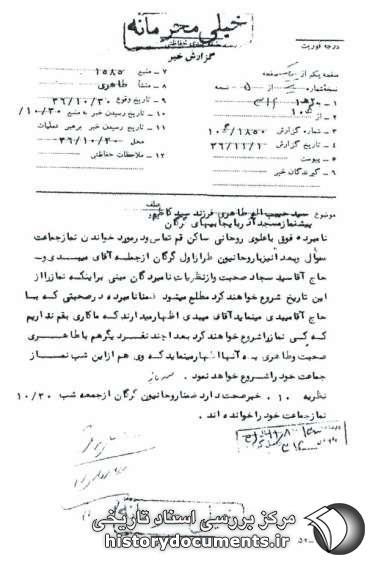 خیلی محرمانه
گزارش خبر
درجه فوریت
صفحه یکم از صفحه
نسخه شماره از ۵ نسخه
۱ – به
۲ – از ۱۰ ﻫ
۳ – شماره گزارش ۱۸۵۰/ ﻫ ۱۰
۴ – تاریخ گزارش ۳۶/۱۱/۱
۵ – پیوست
۶ – گیرندگان خبر
۷ – منبع ۱۵۸۵
۸ – منشأ طاهری
۹ – تاریخ وقوع ۳۶/۱۰/۳۰
۱۰ – تاریخ رسیدن خبر به منبع ۱۰/۳۰/
۱۱ – تاریخ رسیدن خبر به رهبر عملیات
محل ۳۶/۱۰/۳۰
۱۲ – ملاحظات حفاظتی
موضوع سید حبیب اله طاهری فرزند سید کاظم
پیشنماز مسجد آذربایجانیهای گرگان
نامبرده فوق با علوی روحانی ساکن قم تماس و در مورد خواندن نماز جماعت
سئوال و بعد از نیز با روحانیون طراز اول گرگان از جمله آقای میبدی و
حاج آقا سید سجاد صحبت و از نظریات نامبردگان مبنی بر اینکه نماز را از
این تاریخ شروع خواهند کرد مطلع میشود ضمنا نامبرده در صحبتی که با
حاج آقا میبدی مینماید آقای میبدی اظهار میدارند که ما کاری بقم نداریم
که کی نماز را شروع خواهند کرد بعدا چند نفر دیگر هم با طاهری
صحبت و طاهری به آنها اظهار مینماید که وی هم از این شب نماز
جماعت خود را شروع خواهد نمود .
نظریه ۱۰ . خبر صحت دارد ضمنا روحانیون گرگان از جمعه شب ۱۰/۳۰
نماز جماعت خود را خوانده اند .
مرکز بررسی اسناد تاریخی
historydocuments.ir